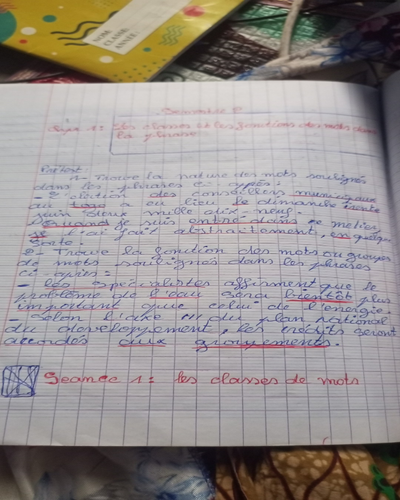 NOM:
CLASSE:
ANNÉE:
Semaine
1: Les classes et les fonctions des mots dans
la phrase
Pretest
1- Trouve la nature des mots soulignés
dans les phrases ci-après:
- L'élection des conseillers municipaux
au Togo a eu lieu le dimanche trente
juin deux mille dix-neuf.
- Quand je suis entré dans ce métier,
je l'ai fait abstraitement, en quelque
sorte.
2- Trouve la fonction des mots ou groupes
de mots soulignés dans les phrases
ci-après:
- Les spécialistes affirment que le
problème de l'eau sera bientôt plus
important que celui de l'énergie.
- Selon l'axe du plan national
du développement, les crédits seront
accordés aux groupements.
Seance 1: les classes de mots